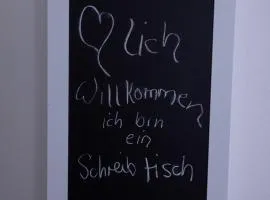 ♡lich
Willkommen
ich bin
ein
Schreibtisch